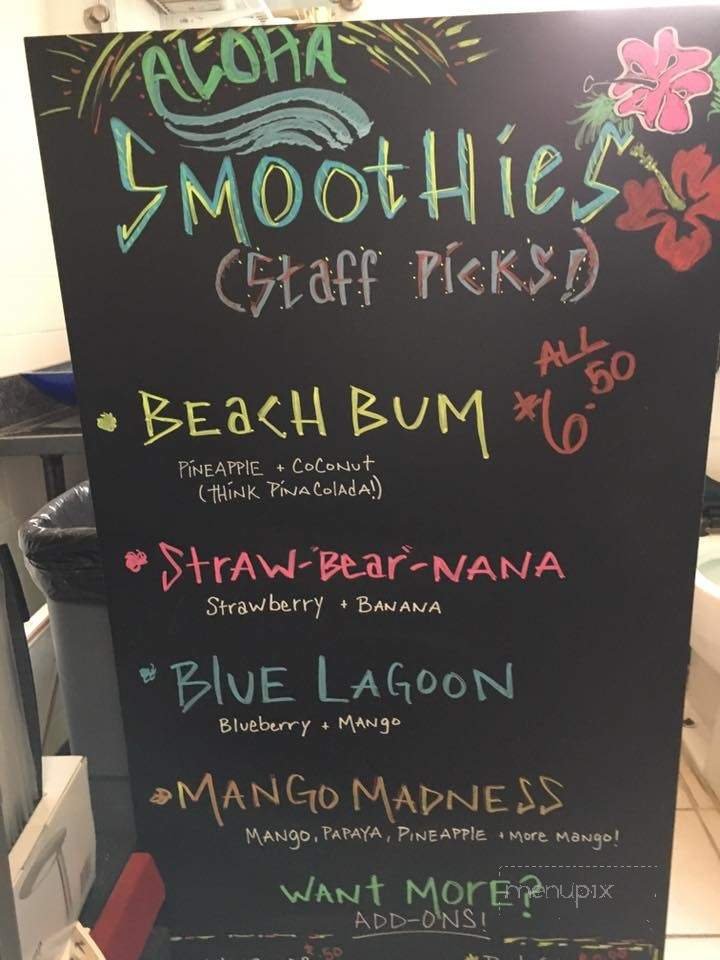 ALOHA
SMOOtHieS
(Staff PicKS!)
ALL
$6.50
BEacH BUM
PiNEAPPlE + CoCoNut
(tHiNK PiNA ColadA!)
StrAW-"Bear"-NANA
Strawberry + BANANA
BLUE LAGOON
Blueberry + MANgo
MANGO MADNESS
MANGO, PAPAYA, PiNEAPPlE + More Mango!
WANt MORE?
menupix
ADD-ONS!
.50